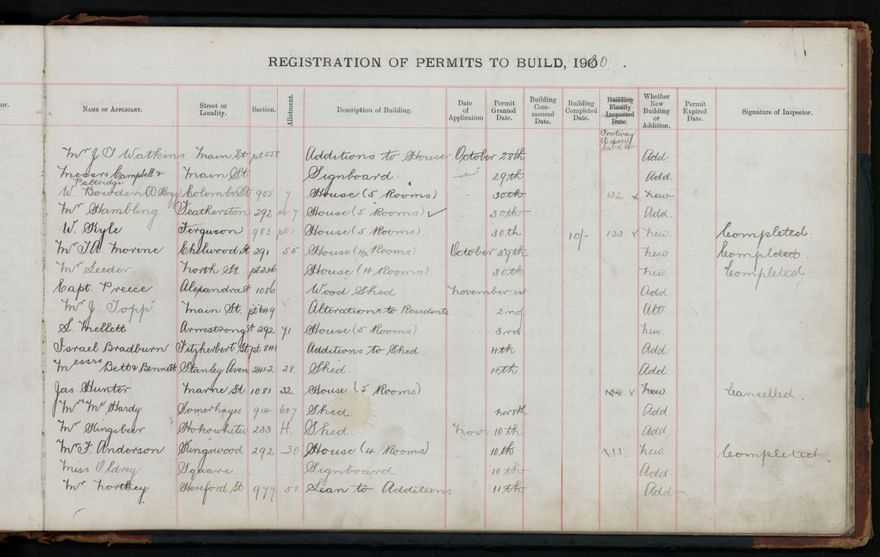 REGISTRATION OF PERMITS TO BUILD, 1930.
NAME OF APPLICANT. Street or Locality. Section. Allotment. Description of Building. Date of Application Permit Granted Date. Building Com-menced Date. Building Completed Date. Building Finally Inspected Date. Whether New Building or Addition. Permit Expired Date. Signature of Inspector.
Footway Deposit
Mr J T Watkins Main St pt 558 Additions to House October 28th Add
Messrs Campbell & Main St Signboard 29th Add
W. Bowden Colombo St 905 7 House (5 Rooms) 30th 132 x New
Mr Hambling Featherston 292 7 House (5 Rooms) ✓ 30th Add
W. Kyle Ferguson 983 House (5 Rooms) 30th 10/- 133 x New Completed.
Mr T.A. Morine Chelwood St 291 55 House (4 Rooms) October 29th New Completed.
Mr Seeder North St pt 236 House (4 Rooms) 30th New Completed
Capt. Preece Alexandra St 1086 Wood Shed November 1st Add
Mr J. Topp Main St. pt 649 Alterations to Residents 2nd Alt
S. Mellett Armstrong St 292 71 House (5 Rooms) 3rd New
Israel Bradburn Fitzherbert St pt 841 Additions to Shed. 4th Add
Messrs Bett & Bennett Stanley Aven 2412 28 Shed 4th Add
Jas Hunter Marne St 1081 32 House (5 Rooms) 134 x New Cancelled.
Mrs Hardy Somerhayes 914 6 & 7 Shed Nov 8th Add
Mr Kingsbeer Hokowhitu 233 H. Shed. Nov. 10th Add
Mr F. Anderson Kingswood 292 30 House (4 Rooms) 10th 111 New Completed.
Miss Oldrey Square Signboard 10th Add
Mr Northey Hereford St 977 58 Lean to Additions 11th Add